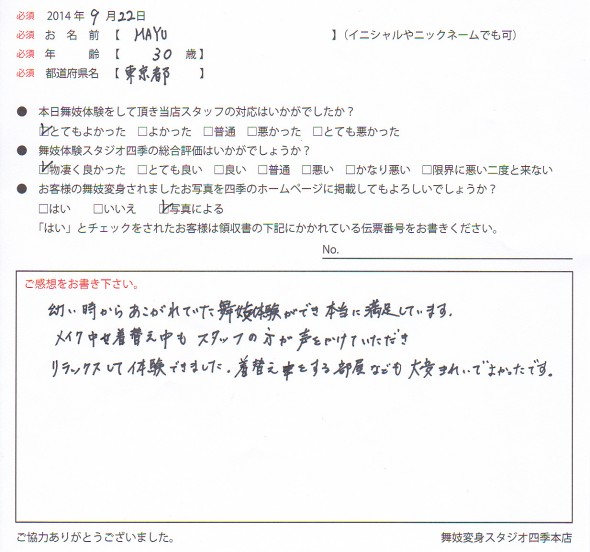 必須 2014年 9月22日
必須 お名前【 MAYU 】(イニシャルやニックネームでも可)
必須 年齢【 30 歳】
必須 都道府県名【 東京都 】
● 本日舞妓体験をして頂き当店スタッフの対応はいかがでしたか?
☑とてもよかった □よかった □普通 □悪かった □とても悪かった
● 舞妓体験スタジオ四季の総合評価はいかがでしょうか?
☑物凄く良かった □とても良い □良い □普通 □悪い □かなり悪い □限界に悪い二度と来ない
● お客様の舞妓変身されましたお写真を四季のホームページに掲載してもよろしいでしょうか?
□はい □いいえ ☑写真による
「はい」とチェックをされたお客様は領収書の下記にかかれている伝票番号をお書きください。
No.
ご感想をお書き下さい。
幼い時からあこがれていた舞妓体験ができ本当に満足しています。
メイク中や着替え中もスタッフの方が声をかけていただき
リラックスして体験できました。着替えをする部屋なども大変きれいでよかったです。
ご協力ありがとうございました。 舞妓変身スタジオ四季本店